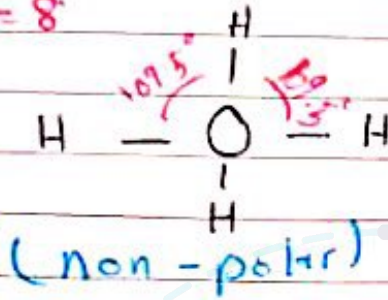 = 8
H
109.5° 109.5°
H — O — H
H
(non-polar)